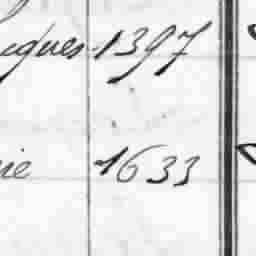 iques 1397
ie 1633